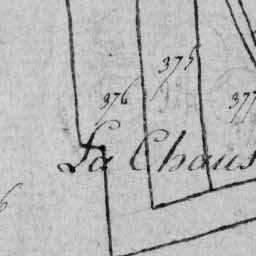 375
376
377
La Chaus
6